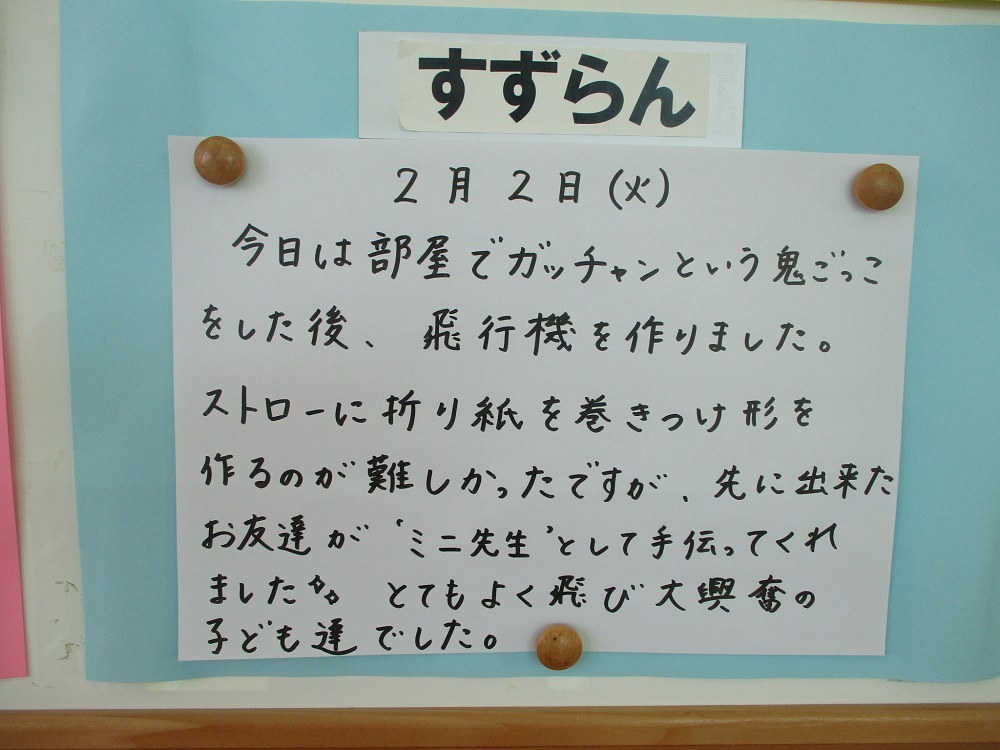 すずらん
2月2日(火)
今日は部屋でガッチャンという鬼ごっこ
をした後、飛行機を作りました。
ストローに折り紙を巻きつけ形を
作るのが難しかったですが、先に出来た
お友達が‘ミニ先生’として手伝ってくれ
ました とてもよく飛び大興奮の
子ども達でした。